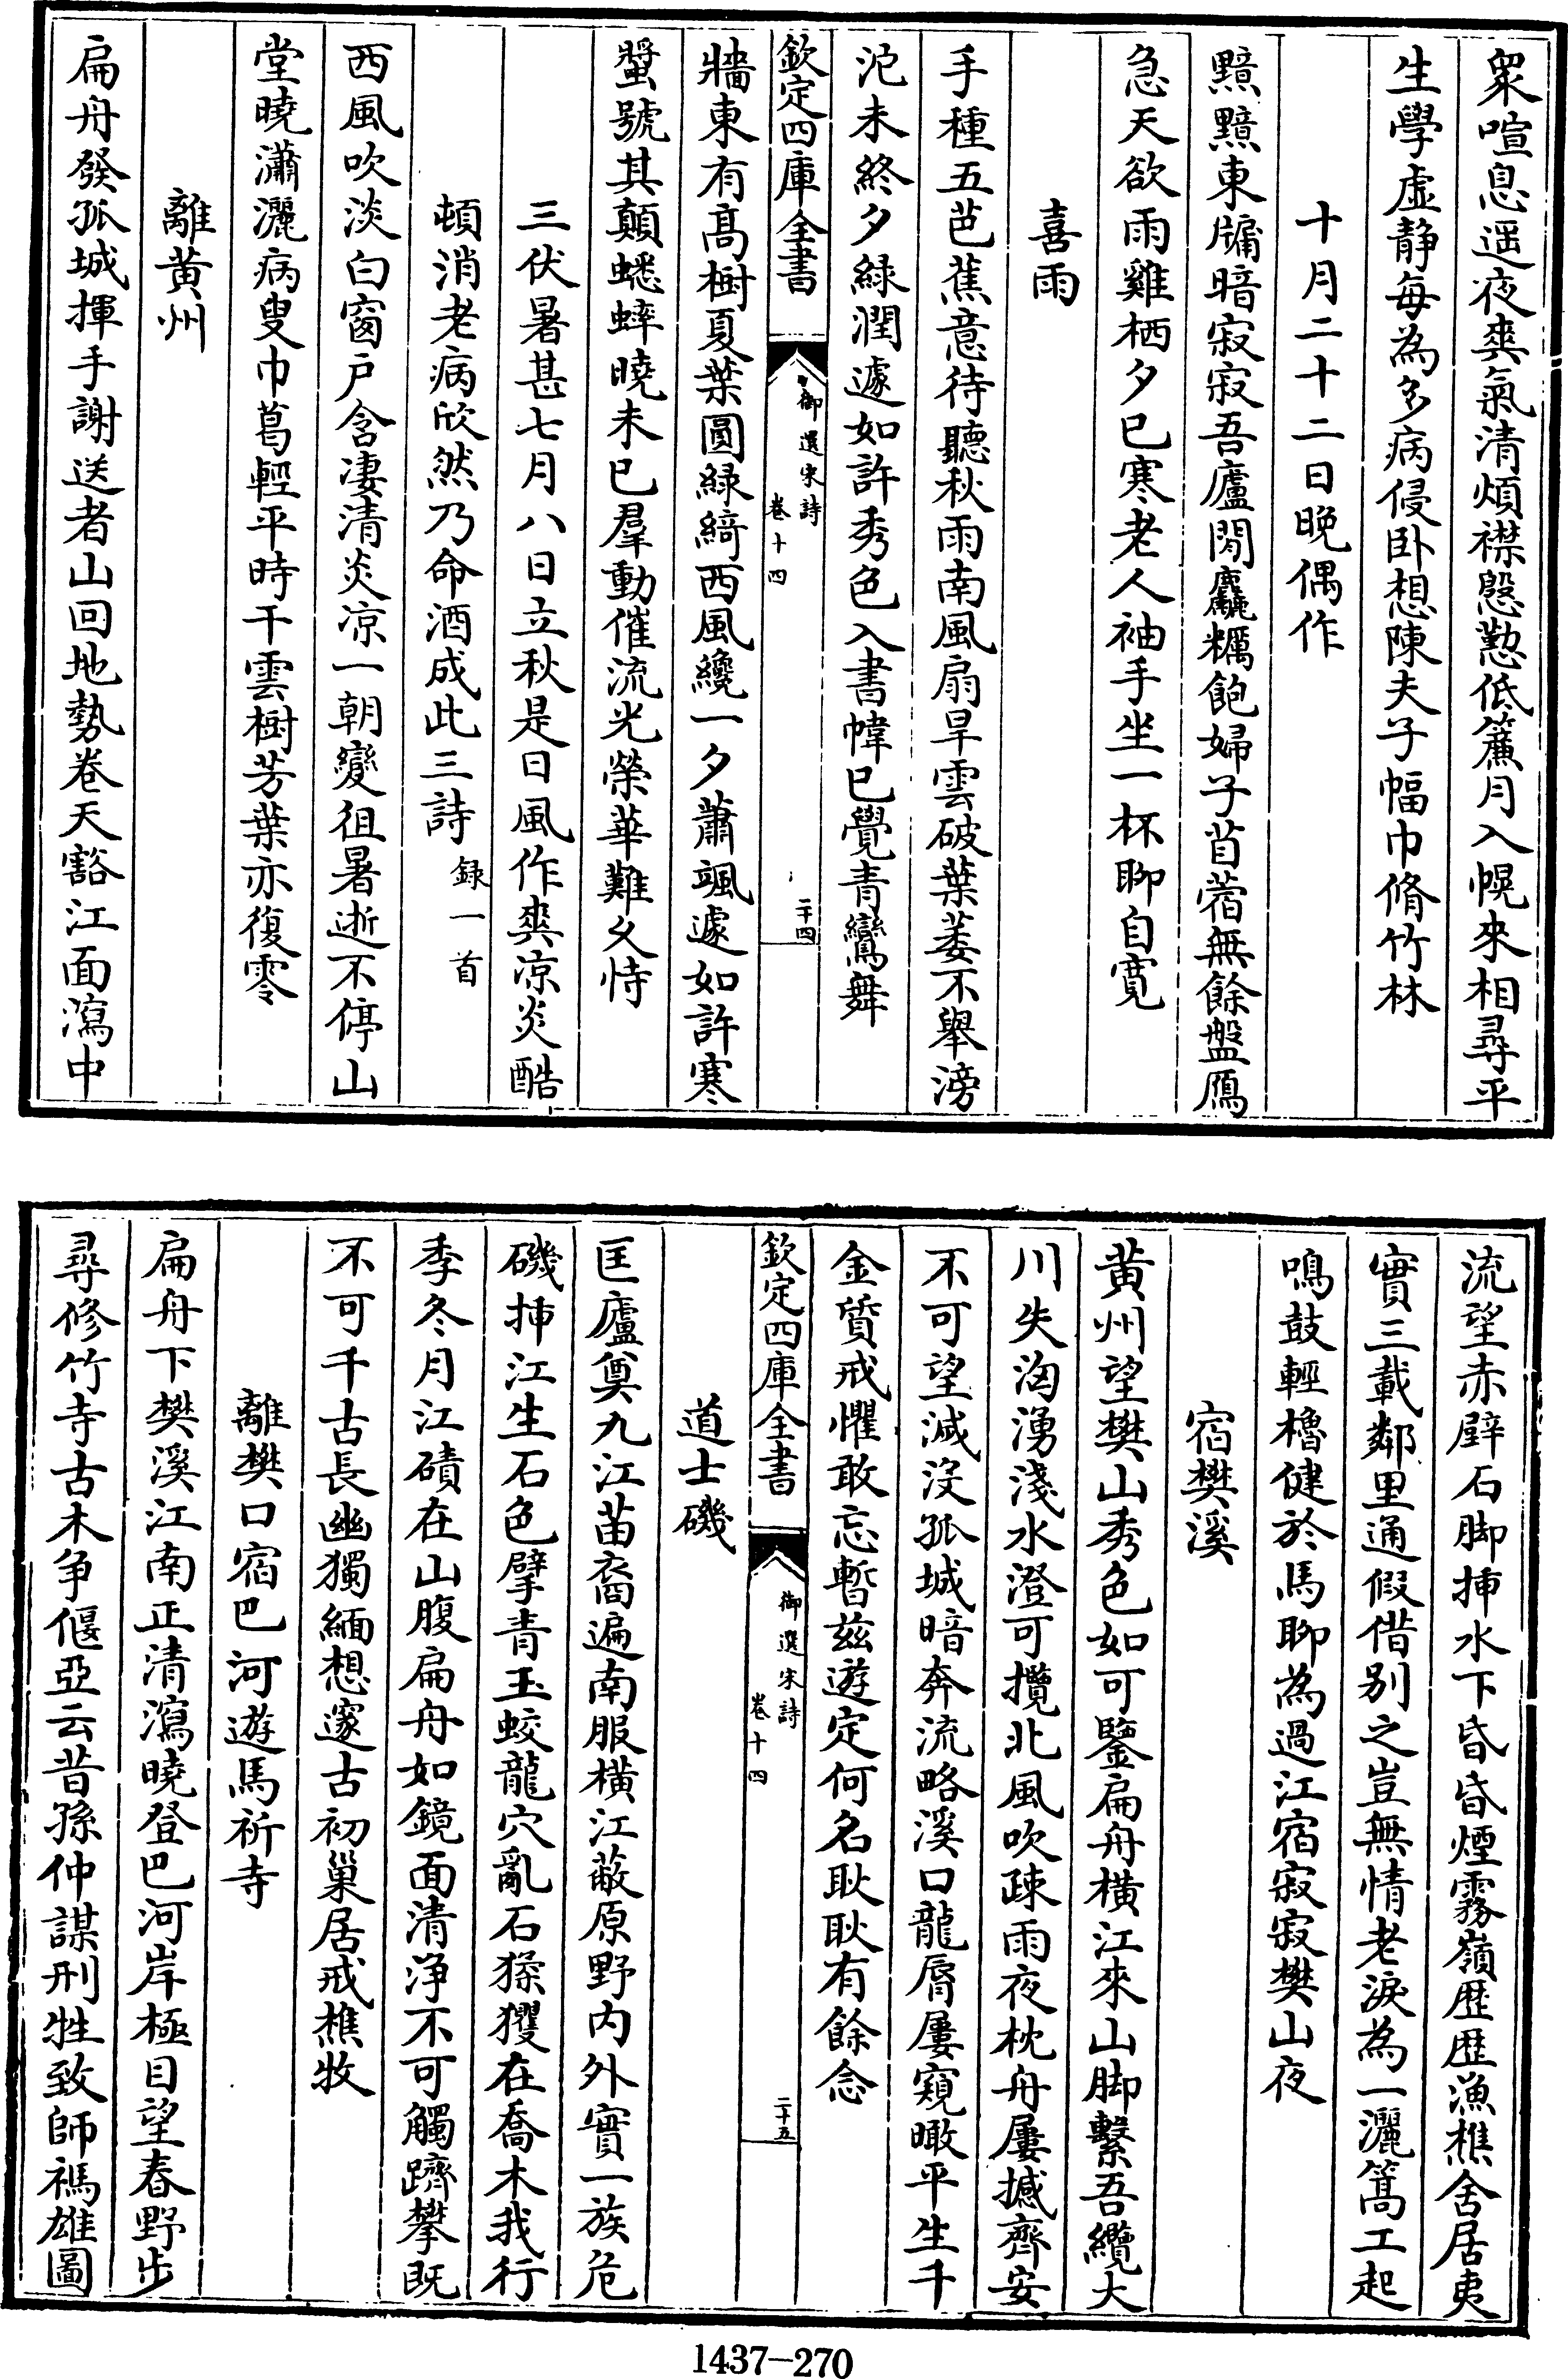 衆喧息遥夜爽氣清煩襟慇懃低簾月入幌來相尋平
生學虚静每為多病侵卧想陳夫子幅巾脩竹林
十月二十二日晚偶作
黯黯東牖暗寂寂吾廬閒麤糲飽婦子苜蓿無餘盤鴈
急天欲雨雞栖夕已寒老人袖手坐一杯聊自寛
喜雨
手種五芭蕉意待聽秋雨南風扇旱雲破葉萎不舉滂
沱未終夕緑潤遽如許秀色入書幃已覺青鸞舞
欽定四庫全書
御選宋詩
卷十四
二十四
牆東有髙樹夏葉圓緑綺西風纔一夕蕭颯遽如許寒
螿號其顛蟋蟀曉未已羣動催流光榮華難久恃
三伏暑甚七月八日立秋是日風作爽凉炎酷
頓消老病欣然乃命酒成此三詩録一首
西風吹淡白窗户含凄清炎凉一朝變徂暑逝不停山
堂曉瀟灑病叟巾葛輕平時干雲樹芳葉亦復零
離黄州
扁舟發孤城揮手謝送者山回地勢卷天豁江面瀉中
流望赤壁石脚揷水下昏昏煙霧嶺歴歴漁樵舍居夷
實三載鄰里通假借别之豈無情老淚為一灑篙工起
鳴鼓輕櫓健於馬聊為過江宿寂寂樊山夜
宿樊溪
黄州望樊山秀色如可鑒扁舟横江來山脚繫吾纜大
川失洶湧淺水澄可攬北風吹疎雨夜枕舟屢撼齊安
不可望減没孤城暗奔流略溪口龍脣屢窺瞰平生千
金質戒懼敢忘暫兹遊定何名耿耿有餘念
欽定四庫全書
御選宋詩
卷十四
二十五
道士磯
匡廬奠九江苗裔遍南服横江蔽原野内外實一族危
磯揷江生石色擘青玉蛟龍穴亂石猱玃在喬木我行
季冬月江磧在山腹扁舟如鏡面清浄不可觸躋攀既
不可千古長幽獨緬想邃古初巢居戒樵牧
離樊口宿巴河遊馬祈寺
扁舟下樊溪江南正清瀉曉登巴河岸極目望春野步
尋修竹寺古木争偃亞云昔孫仲謀刑牲致師禡雄圖
1437-270